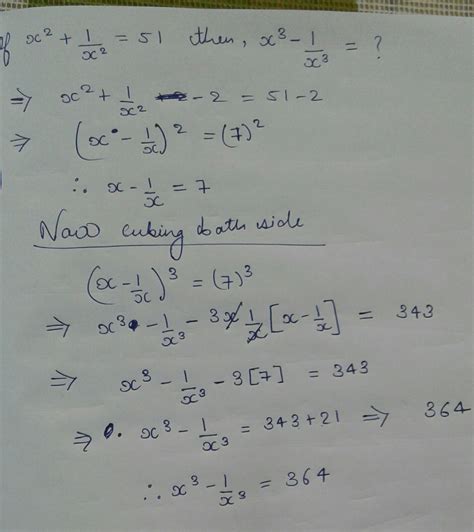 If x² + 1/x² = 51 then, x³ - 1/x³ = ?
⇒ x² + 1/x² - 2 = 51 - 2
⇒ (x - 1/x)² = (7)²
∴ x - 1/x = 7
Now cubing both side
(x - 1/x)³ = (7)³
⇒ x³ - 1/x³ - 3x 1/x [x - 1/x] = 343
⇒ x³ - 1/x³ - 3[7] = 343
⇒ x³ - 1/x³ = 343 + 21 ⇒ 364
∴ x³ - 1/x³ = 364